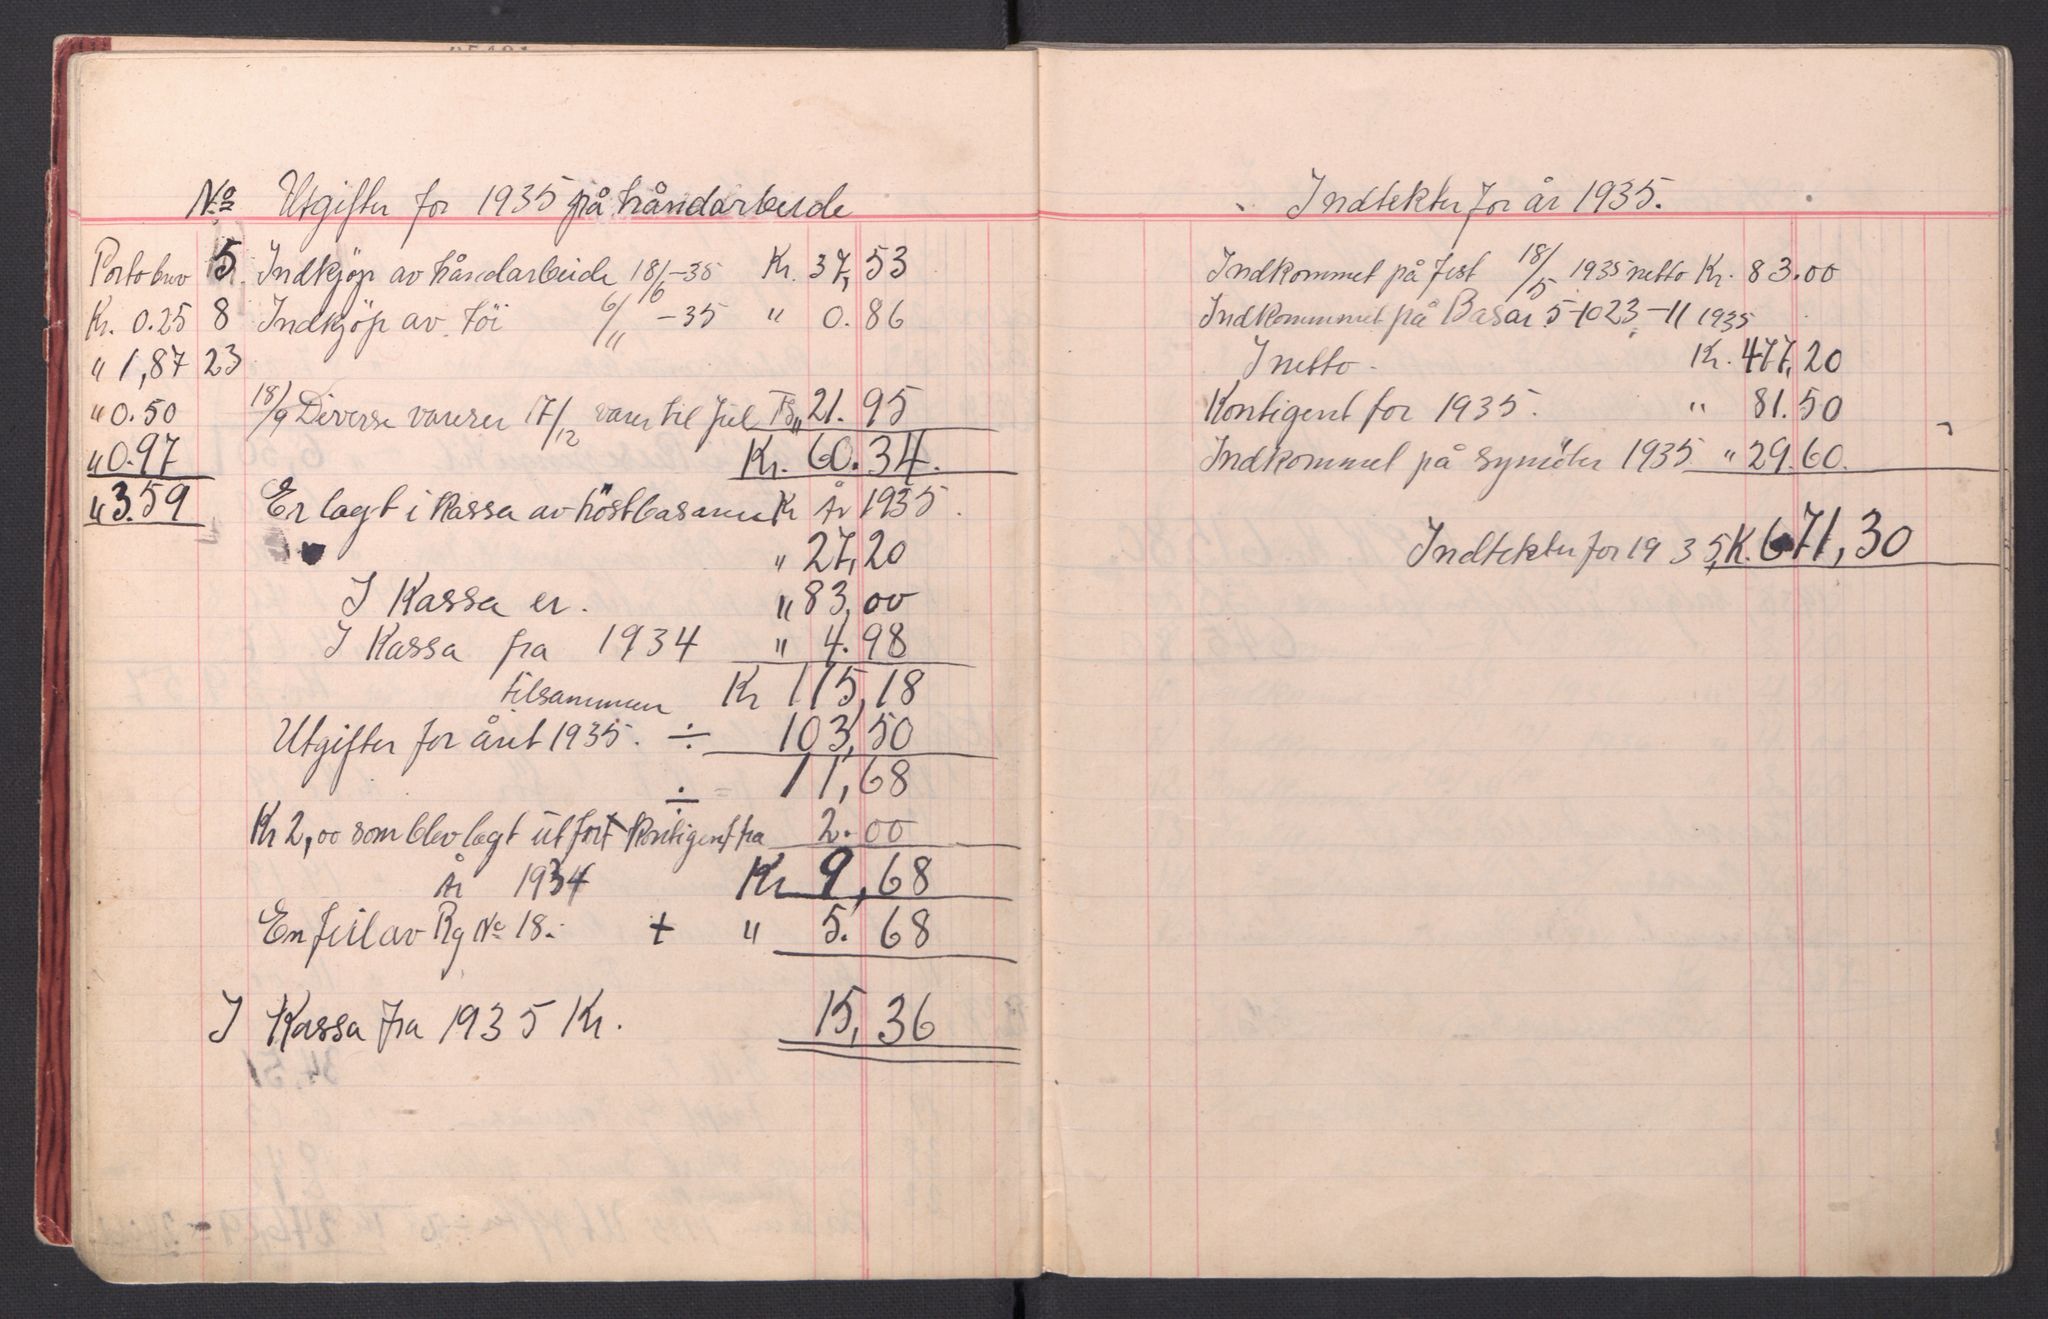 No Utgifter for 1935 på håndarbeide
Porto brev 5 Indkjöp av håndarbeide 18/6 -35 Kr. 37,53
Kr. 0.25 8 Indkjöp av töi 6/11 -35 " 0.86
" 1,87 23
" 0.50 18/9 Diverse varerer 17/12 varer til jul " 21.95
" 0.97 Kr. 60.34.
" 3.59 Er lagt i Kassa av höstbasaren Kr År 1935.
" 27,20
I Kassa er. " 83,00
I Kassa fra 1934 " 4.98
tilsammen Kr 115,18
Utgifter for året 1935. ÷ 103,50
11,68
÷
Kr 2,00 som blev lagt ut for Kontigent fra 2.00
År 1934 Kr 9,68
En feil av Rg No 18. + " 5.68
I Kassa fra 1935 Kr. 15,36
Indtekter for år 1935.
Indkommet på fest 18/5 1935 netto Kr. 83.00
Indkommet på Basar 5-10 23-11 1935
I netto. Kr. 477,20
Kontigent for 1935. " 81.50
Indkommet på symöter 1935 " 29.60.
Indtekter for 1935, K. 671,30